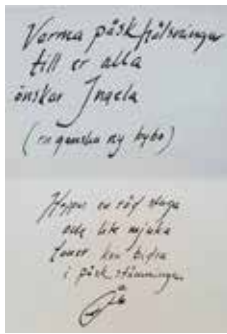 Varma påskhälsningar
till er alla
önskar Ingela
(en ganska ny bybo)
Hoppas en röd stuga
och lite mjuka
toner kan bidra
i påskstämningen